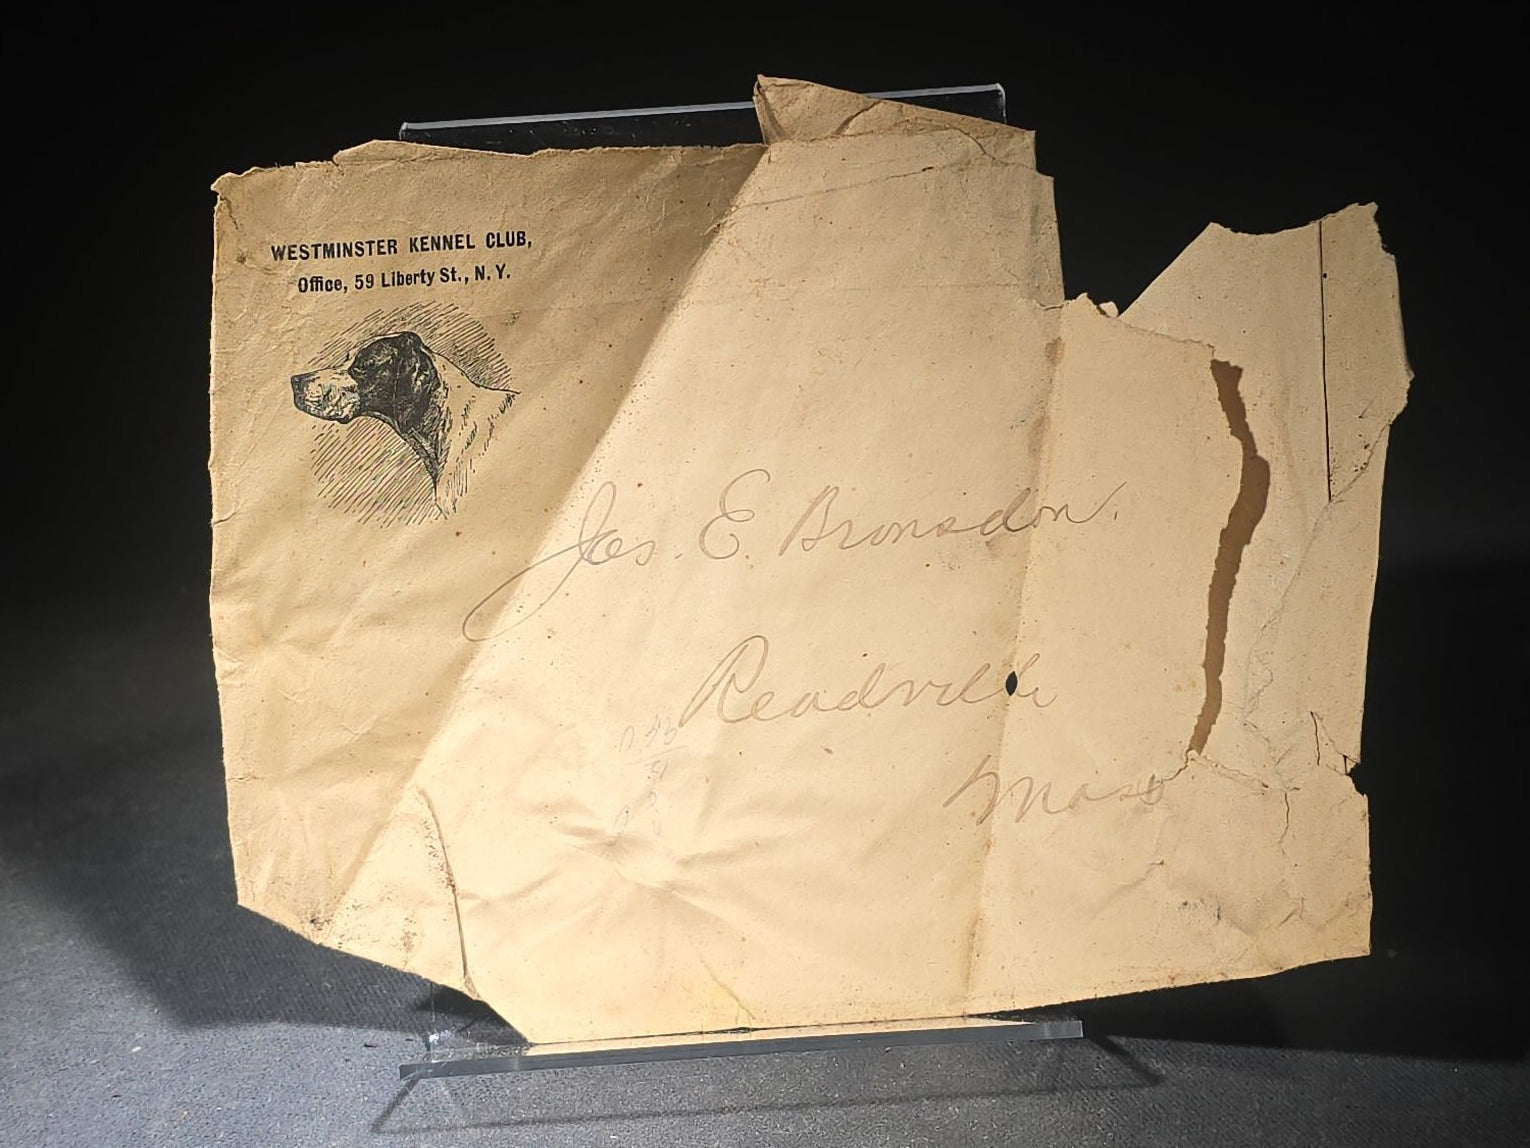 WESTMINSTER KENNEL CLUB,
Office, 59 Liberty St., N. Y.
Jas. E. Bronsdon.
Readville
Mass